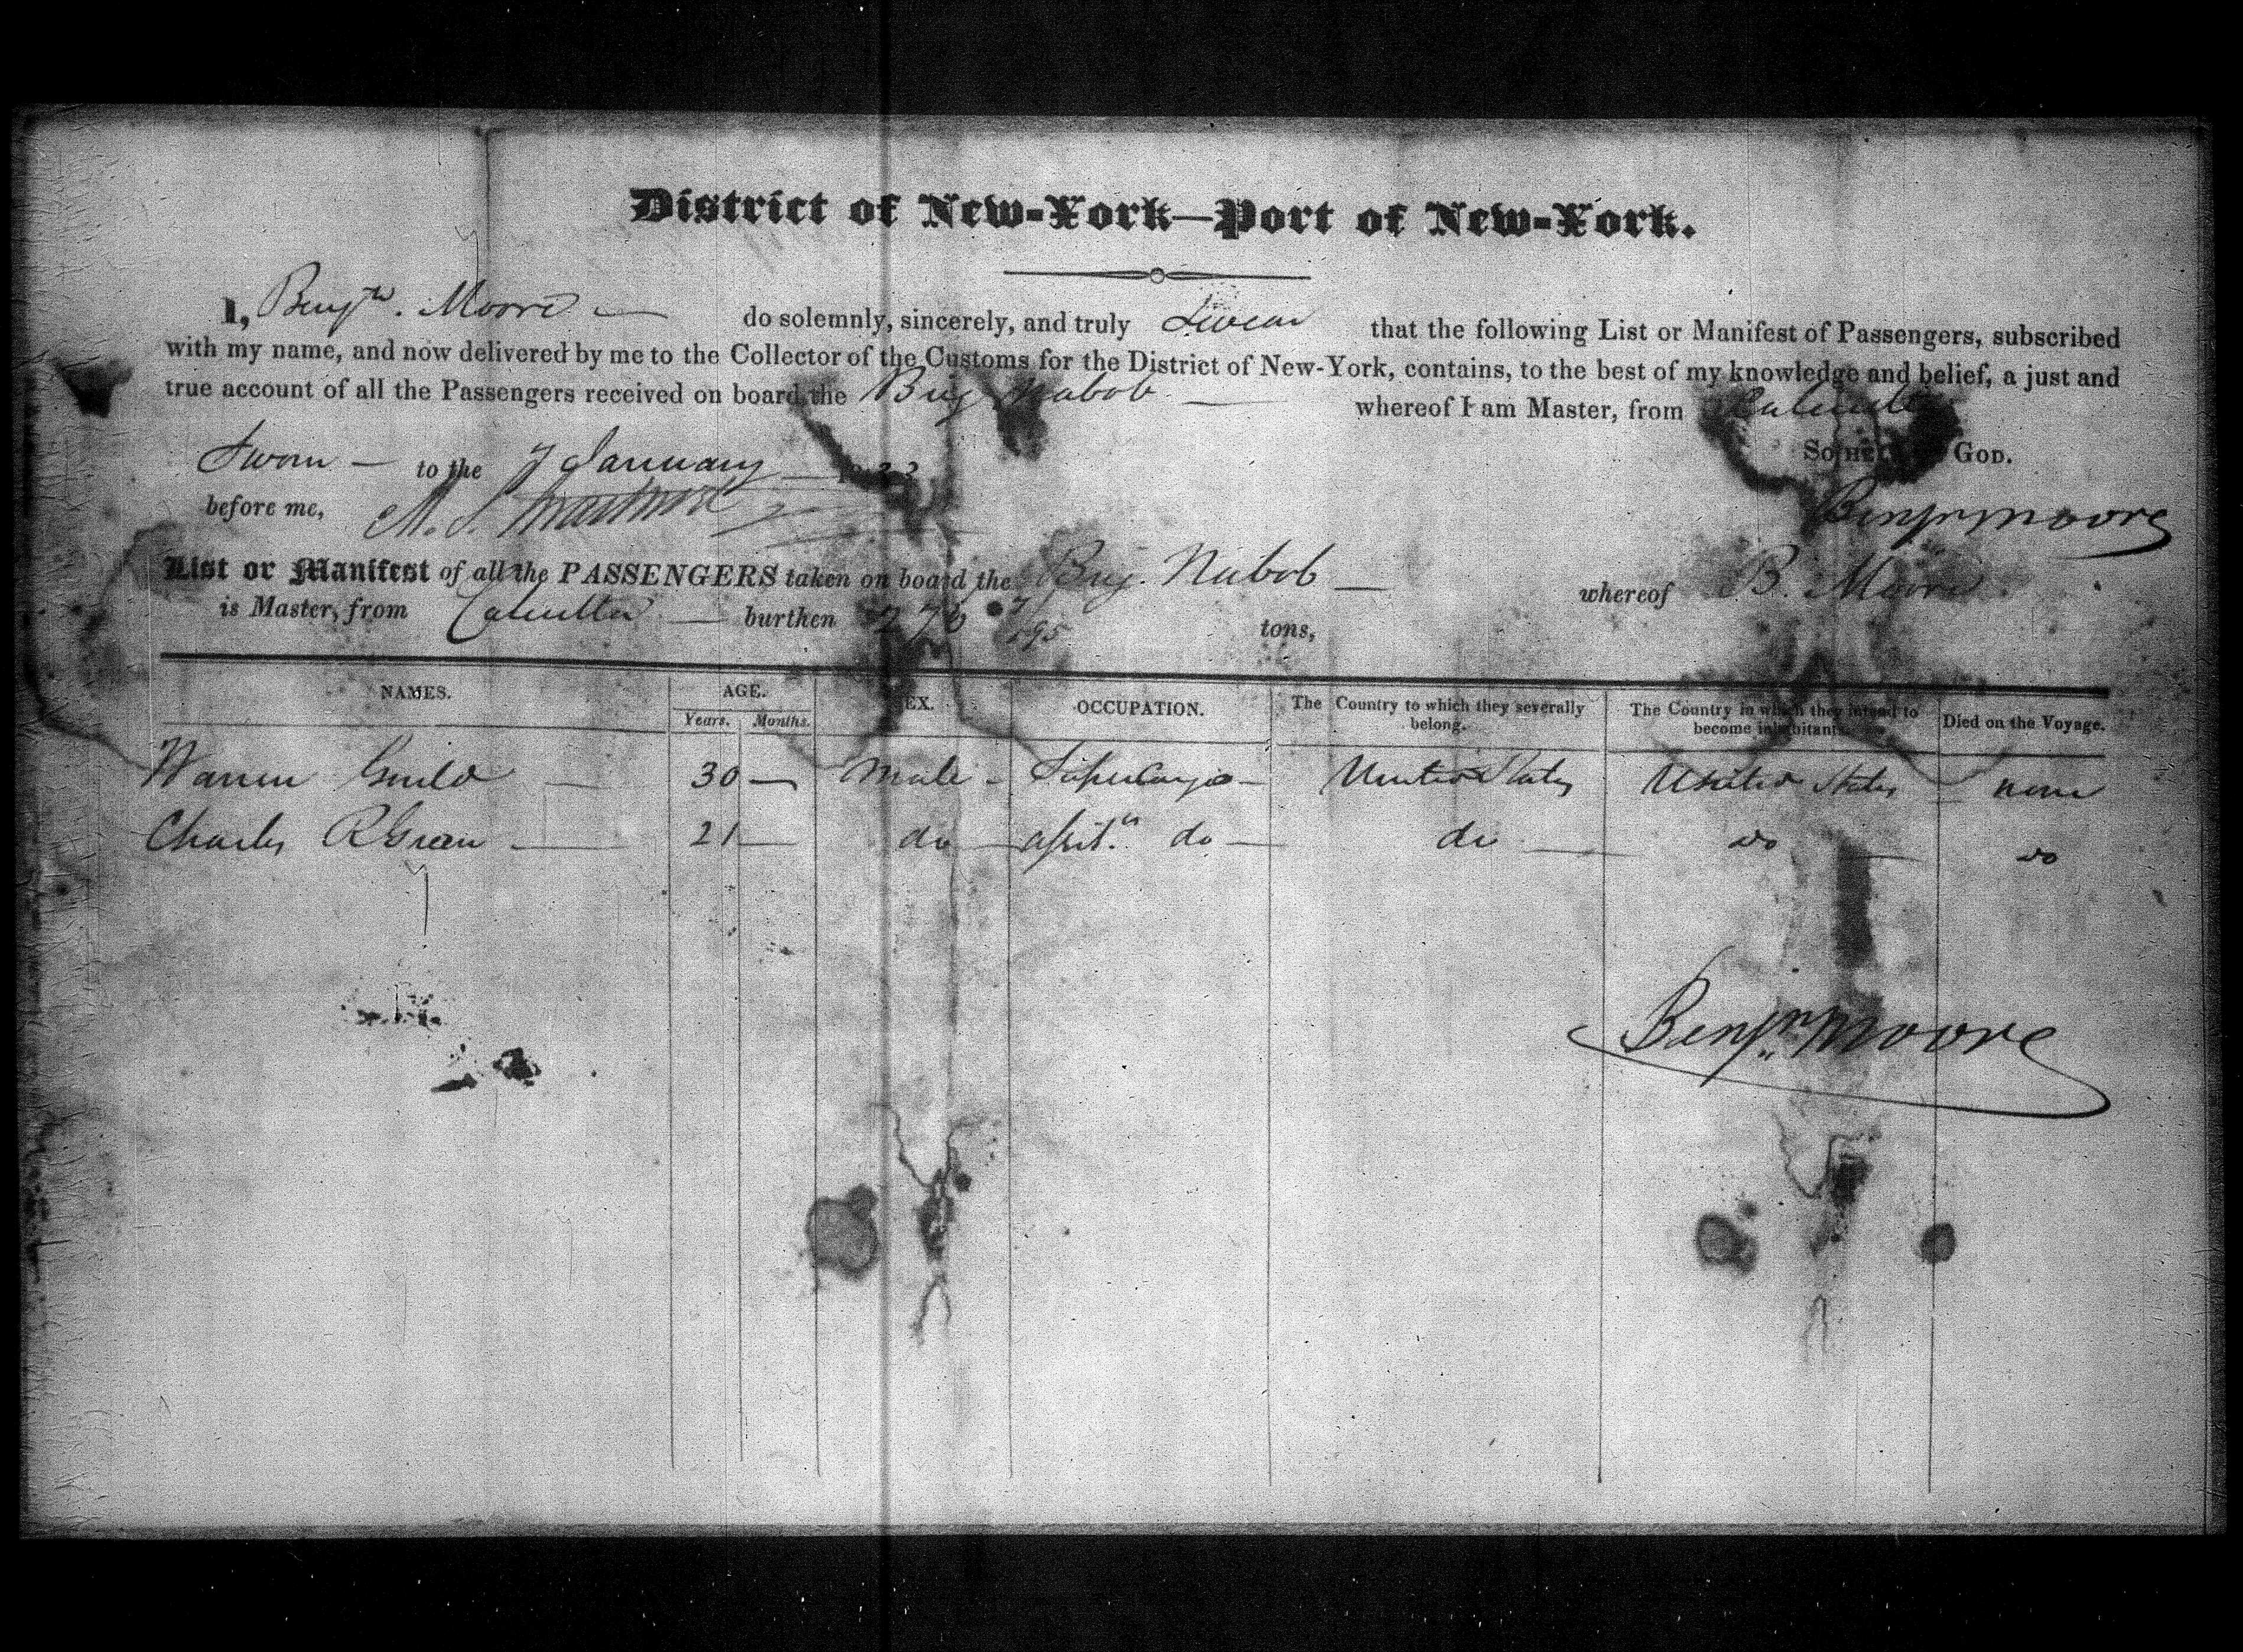 District of New-York—Port of New-York.
I, Benjn. Moore — do solemnly, sincerely, and truly Swear that the following List or Manifest of Passengers, subscribed
with my name, and now delivered by me to the Collector of the Customs for the District of New-York, contains, to the best of my knowledge and belief, a just and
true account of all the Passengers received on board the Brig Nabob — whereof I am Master, from Calcutta
So help me God.
Sworn — to the 7 January
before me, M. S.
Benjn Moore
List or Manifest of all the PASSENGERS taken on board the Brig. Nabob — whereof B. Moore
is Master, from Calcutta — burthen 276 7/95 tons,
NAMES. AGE. SEX. OCCUPATION. The Country to which they severally belong. The Country in which they intend to become inhabitants. Died on the Voyage.
Years. Months.
Warren Guild — 30 — Male - Supercargo — United States United States none
Charles R Green — 21 — do — asst. do — do — do — do
Benjn Moore